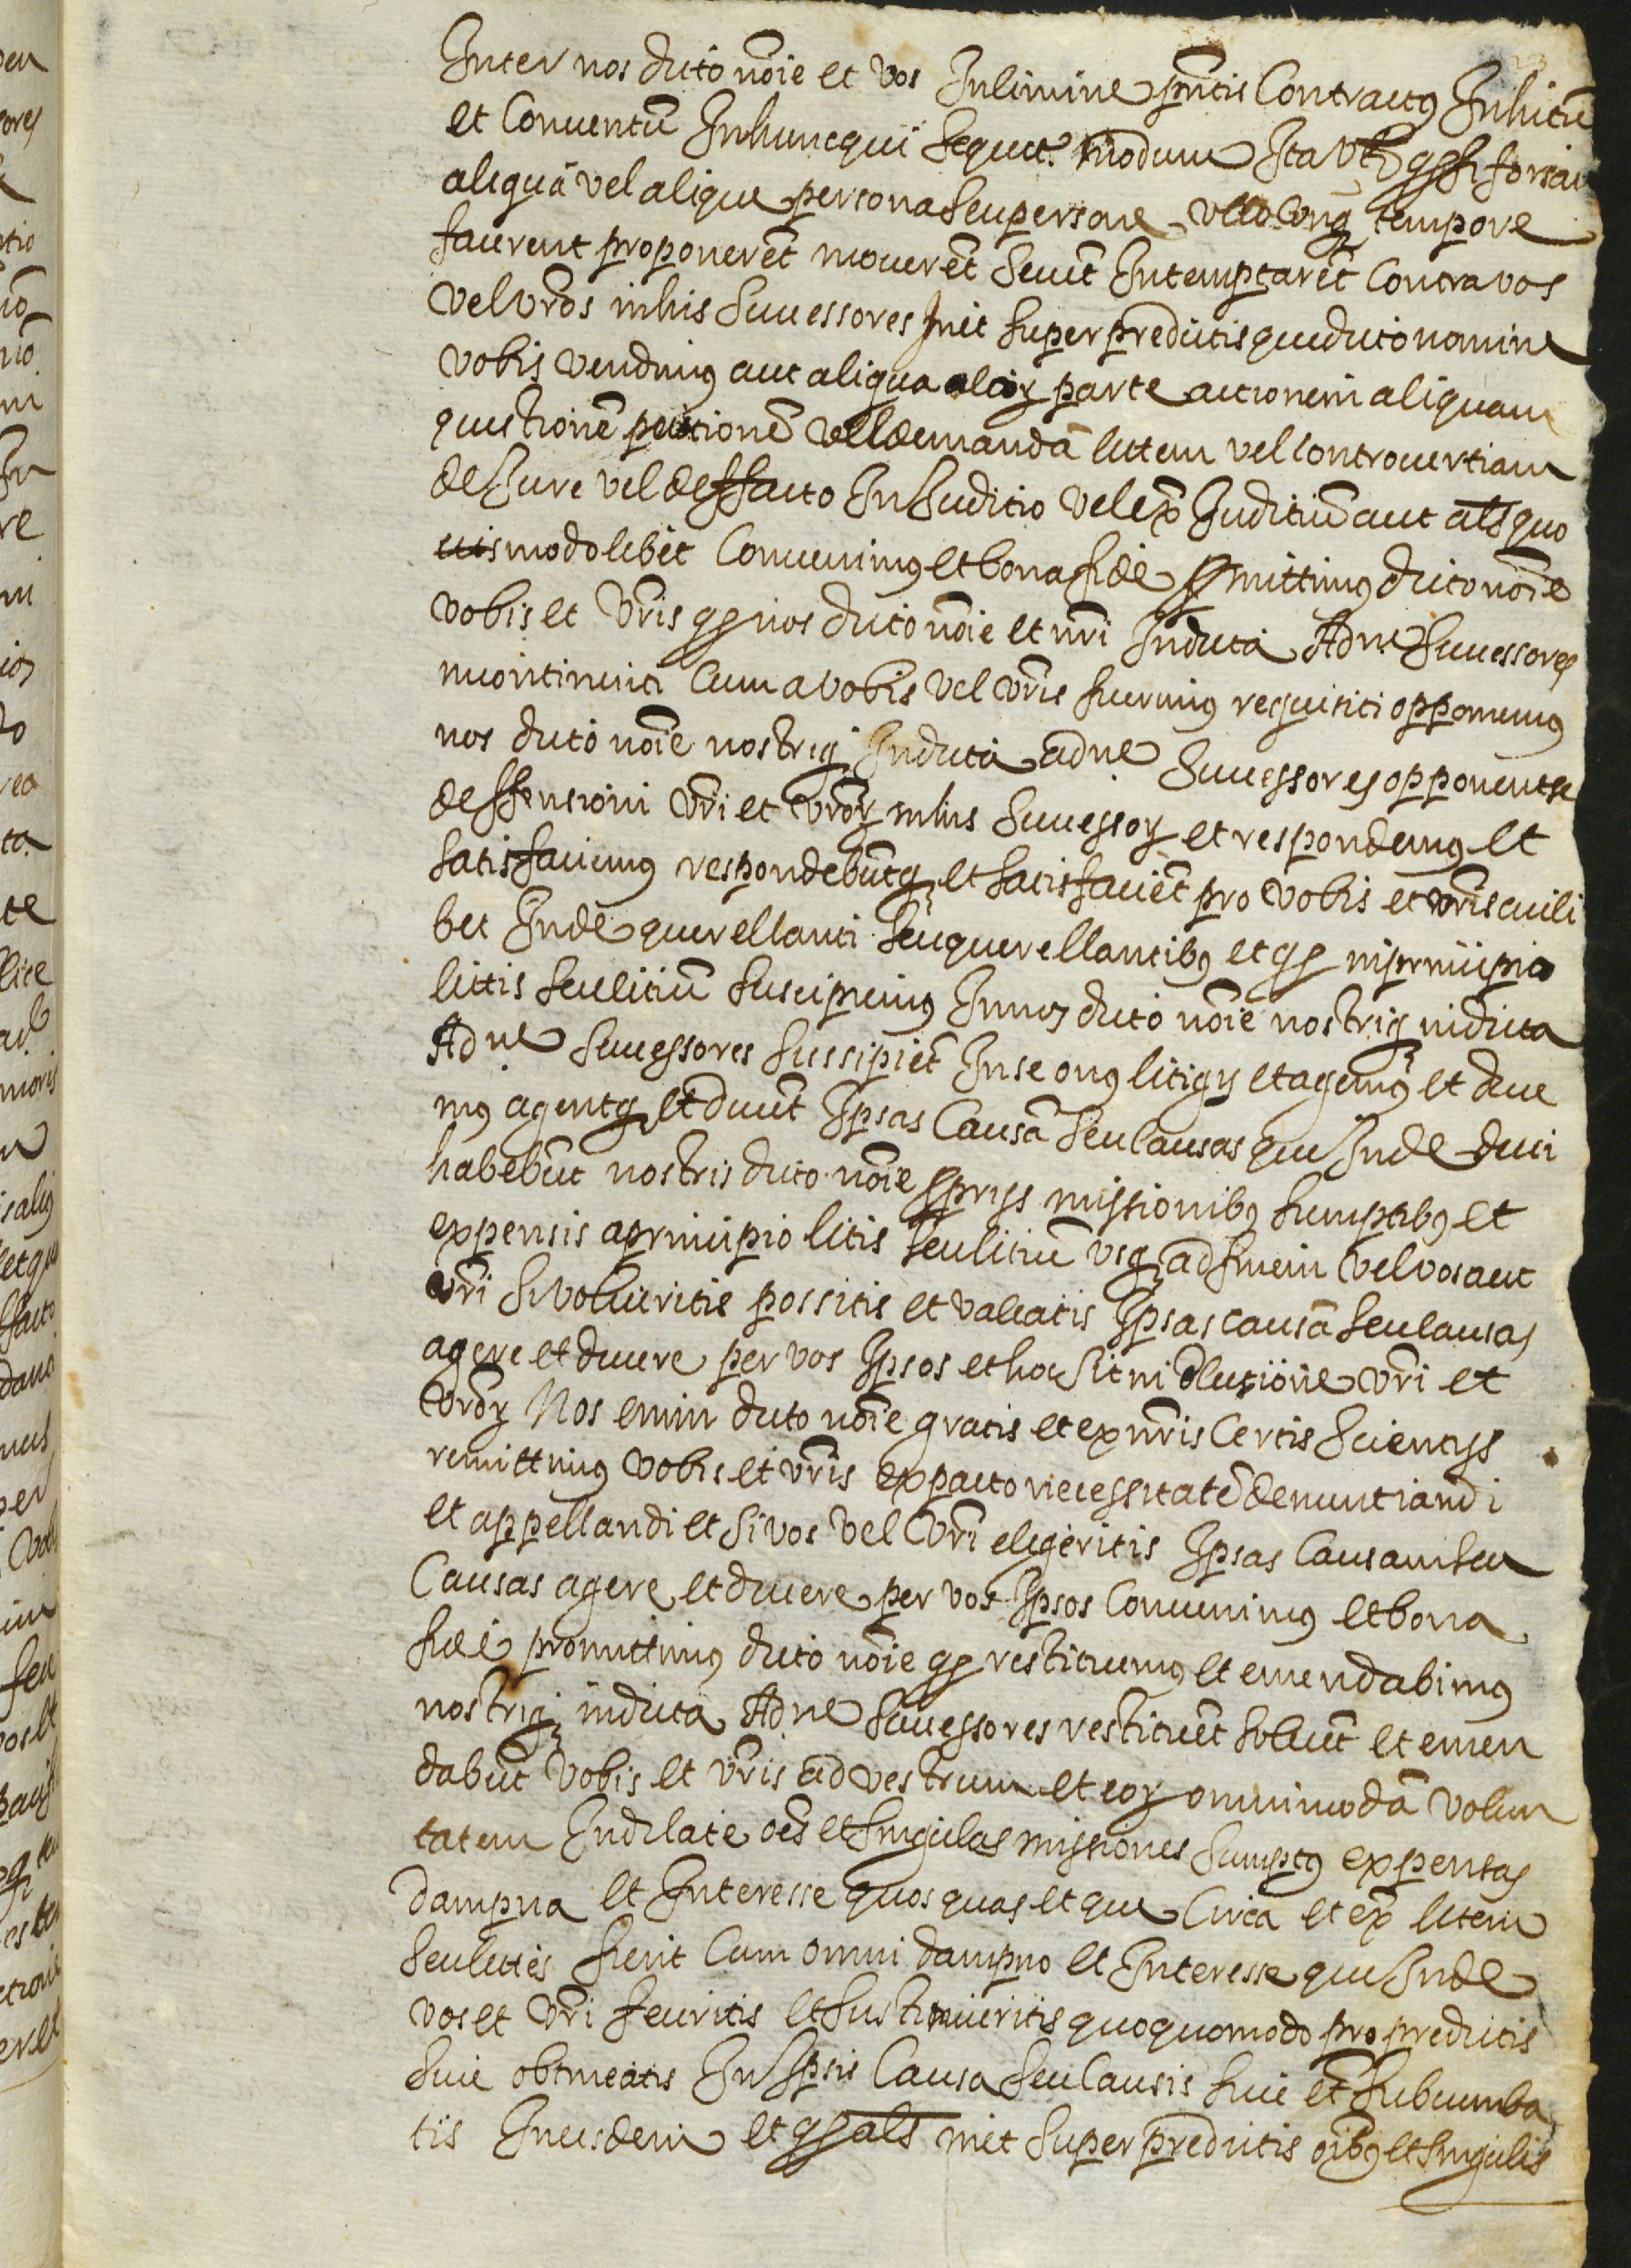 Inter nos dicto nõie et vos Inlimine pñtis Contractus Inhitũ
et Conventũ Inhuncqui Sequit modum Ita vt qd si forsan
aliquã vel alique persona seu persone vllo unq tempore
facerent proponerẽt moverẽt seuẽt Intemptarẽt Contra vos
vel vr̃os inhis Successores Init super predictis que dicto nomine
vobis vendimus aut aliqua alicuius parte actionem aliquam
questionẽ petitionẽ vel demandã littem vel controvertiam
de Jure vel de ffacto In Juditio vel exã Juditiũ aut als quo
vismodo libet Convenimus et bona fide promittimus dicto nõie
vobis et vr̃is qd nos dicto nõie et nr̃i Indicta Adne Successores
incontinenti Cum a vobis vel vr̃is fuerimus requisiti opponemus
nos dicto nõie nostriq Indicta adne Successores opponent se
deffensioni vr̃i et vr̃oꝝ inhis Successoꝝ et respondemus et
satisfaciemus respondebũtq et satisfaciẽt pro vobis et vr̃is cuili
bet Inde querellanti seu querellantibus et qd inprincipio
littis seu litiũ Suscipiemus In nos dicto nõie nostriq indicta
Adne Successores Sussipiẽt In se onus litigij et agemus et duce
mus agentq et ducẽt Ipsas Causã seu Causas que Inde duci
habebũt nostris dicto nõie proprijs missionibus sumptibus et
expensis a principio litis seu litiũ vsq ad finem vel vos aut
vr̃i Si volueritis possitis et valeatis Ipsas causã seu causas
agere et ducere per vos Ipsos et hoc sit in electione vr̃i et
vr̃oꝝ Nos enim dicto nõie gratis et ex nr̃is Certis Scientijs
remittimus vobis et vr̃is ex pacto necessitatẽ denuntiandi
et appellandi et si vos vel vr̃i elegeritis Ipsas Causam seu
Causas agere et ducere per vos Ipsos Convenimus et bona
fide promittimus dicto nõie qd restituemus et emendabimus
nostriq indicta Adne Successores restituẽt solvẽt et emen
dabũt vobis et vr̃is ad vestrum et eoꝝ omnimodã volun
tatem Indilate oẽs et singulas missiones sumptus expensas
dampna et Interesse quos quas et que Circa et exã litem
seu littes fierit Cum omni dampno et Interesse que Inde
vos et vr̃i feceritis et sustinueritis quoquomodo pro predictis
sive obtineatis In Ipsis Causa seu Causis sive etiã subcumba
tis In eisdem et qd als init super predictis oĩbus et singulis